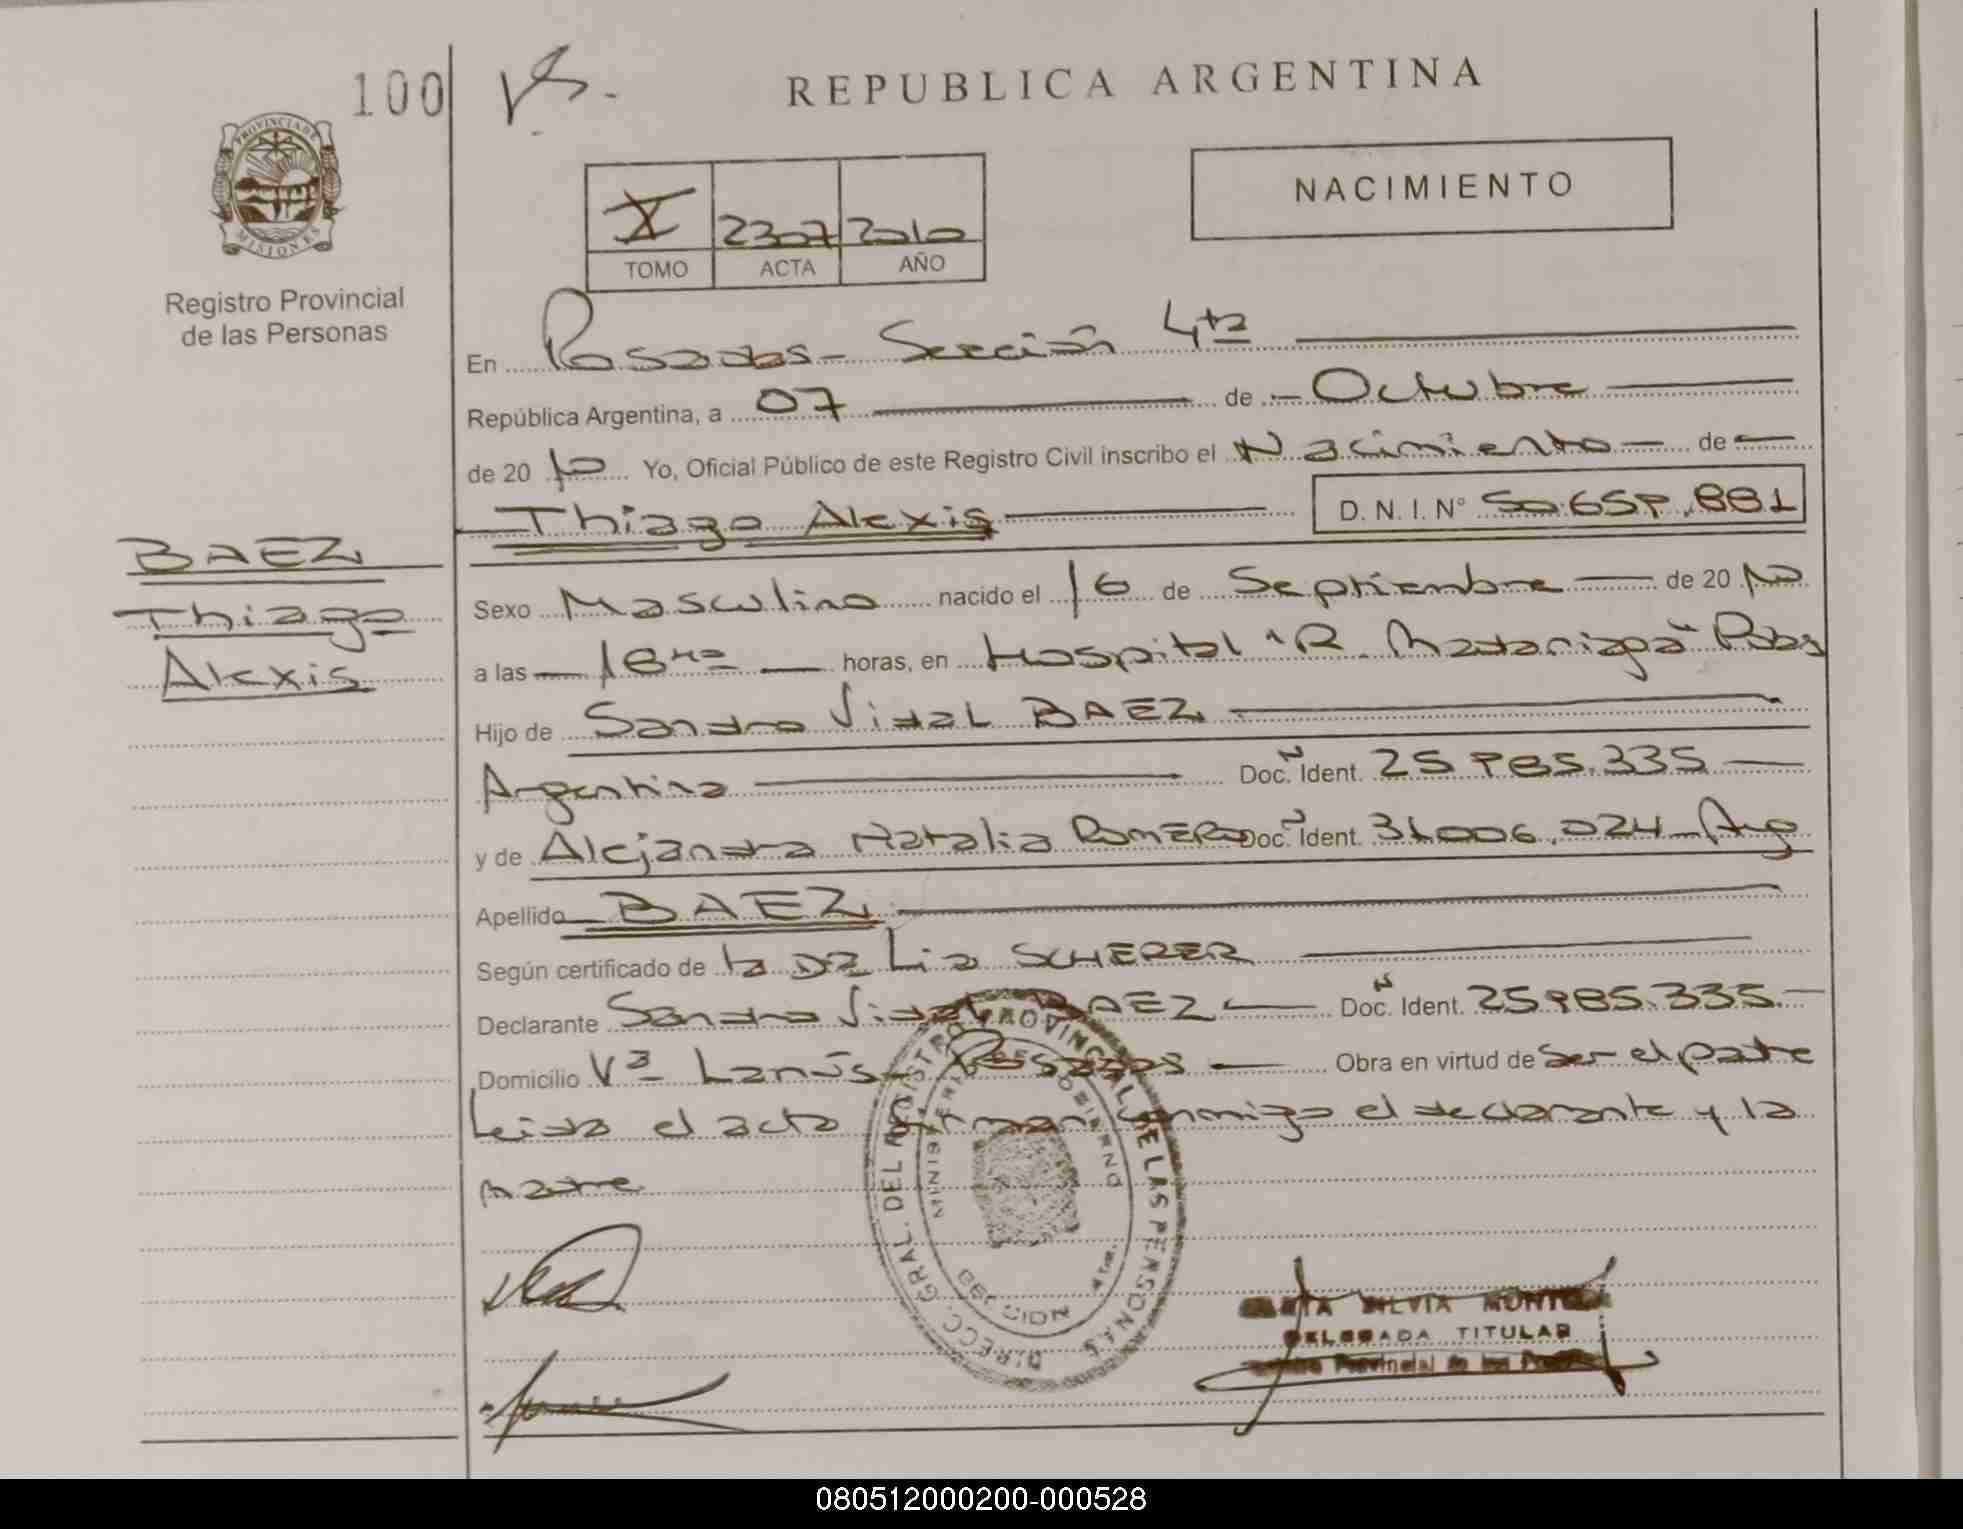 100 Vs.-
REPUBLICA ARGENTINA
PROVINCIA DE
MISIONES
Registro Provincial
de las Personas
X 2307 2010
TOMO ACTA AÑO
NACIMIENTO
En Posadas - Sección 4ta
República Argentina, a 07 de Octubre
de 20 10 Yo, Oficial Público de este Registro Civil inscribo el Nacimiento de
Thiago Alexis D. N. I. N° 50.659.881
BAEZ
Thiago
Alexis
Sexo Masculino nacido el 16 de Septiembre de 20 10
a las horas, en Hospital "R. Madariaga" Pdas
Hijo de Sandro Vidal BAEZ
Argentina Doc. Ident. 25 985.335
y de Alejandra Natalia ROMERO Doc. Ident. 31.006.024 Arg
Apellido BAEZ
Según certificado de la DRA Lia SCHERER
Declarante Sandro Vidal BAEZ Doc. Ident. 25985.335
Domicilio Vª Lanús - Posadas Obra en virtud de Ser el padre
Leida el acta firman conmigo el declarante y la
madre
DIRECC. GRAL. DEL REGISTRO PROVINCIAL DE LAS PERSONAS
MINISTERIO DE GOBIERNO
SILVIA
DELEGADA TITULAR
Provincial de las
080512000200-000528